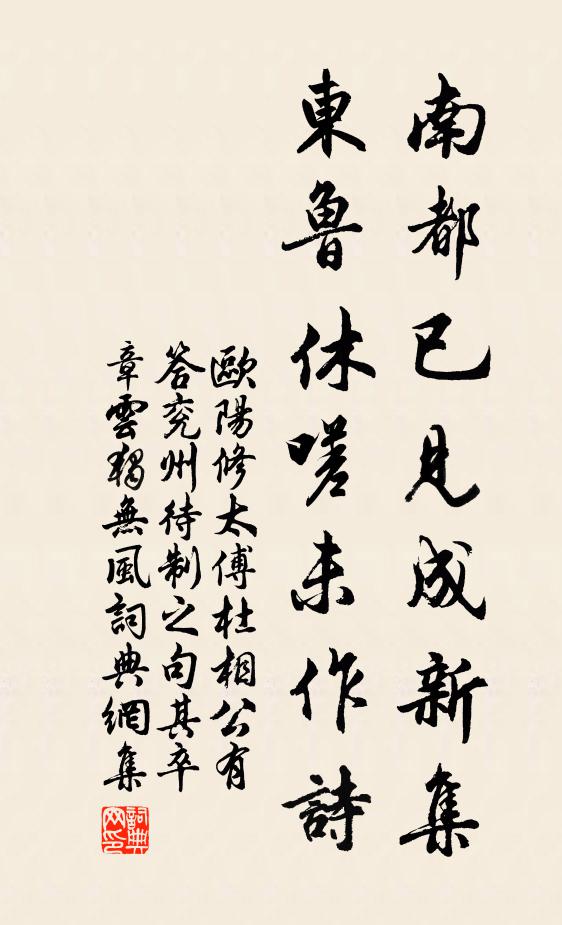 南都已見成新集
東魯休嗟未作詩
歐陽修太傅杜相公有
答兖州待制之句其卒
章雲獨無風詞典網集
詞典网印